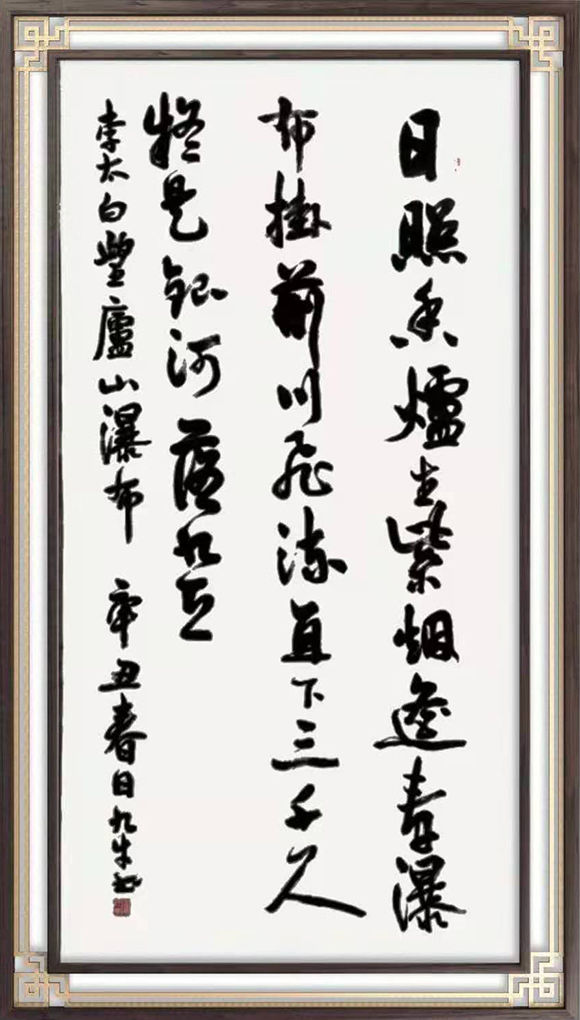 日照香爐生紫烟遙看瀑
布掛前川飛流直下三千尺
疑是銀河落九天
李太白望廬山瀑布 辛丑春日九牛书